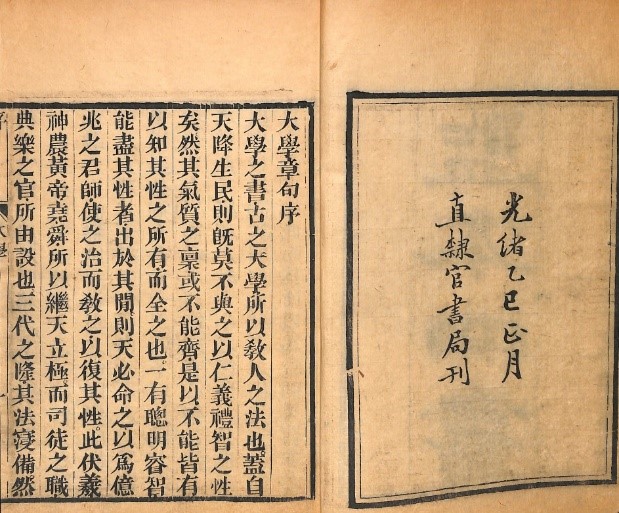 光緒乙巳正月
直隸官書局刊
大學章句序
大學之書古之大學所以敎人之法也。蓋自
天降生民則旣莫不與之以仁義禮智之性
矣然其氣質之稟或不能齊是以不能皆有
以知其性之所有而全之也一有聰明睿智
能盡其性者出於其閒則天必命之以爲億
兆之君師使之治而敎之以復其性。此伏羲
神農黃帝堯舜所以繼天立極而司徒之職
典樂之官所由設也三代之隆其法寖備然